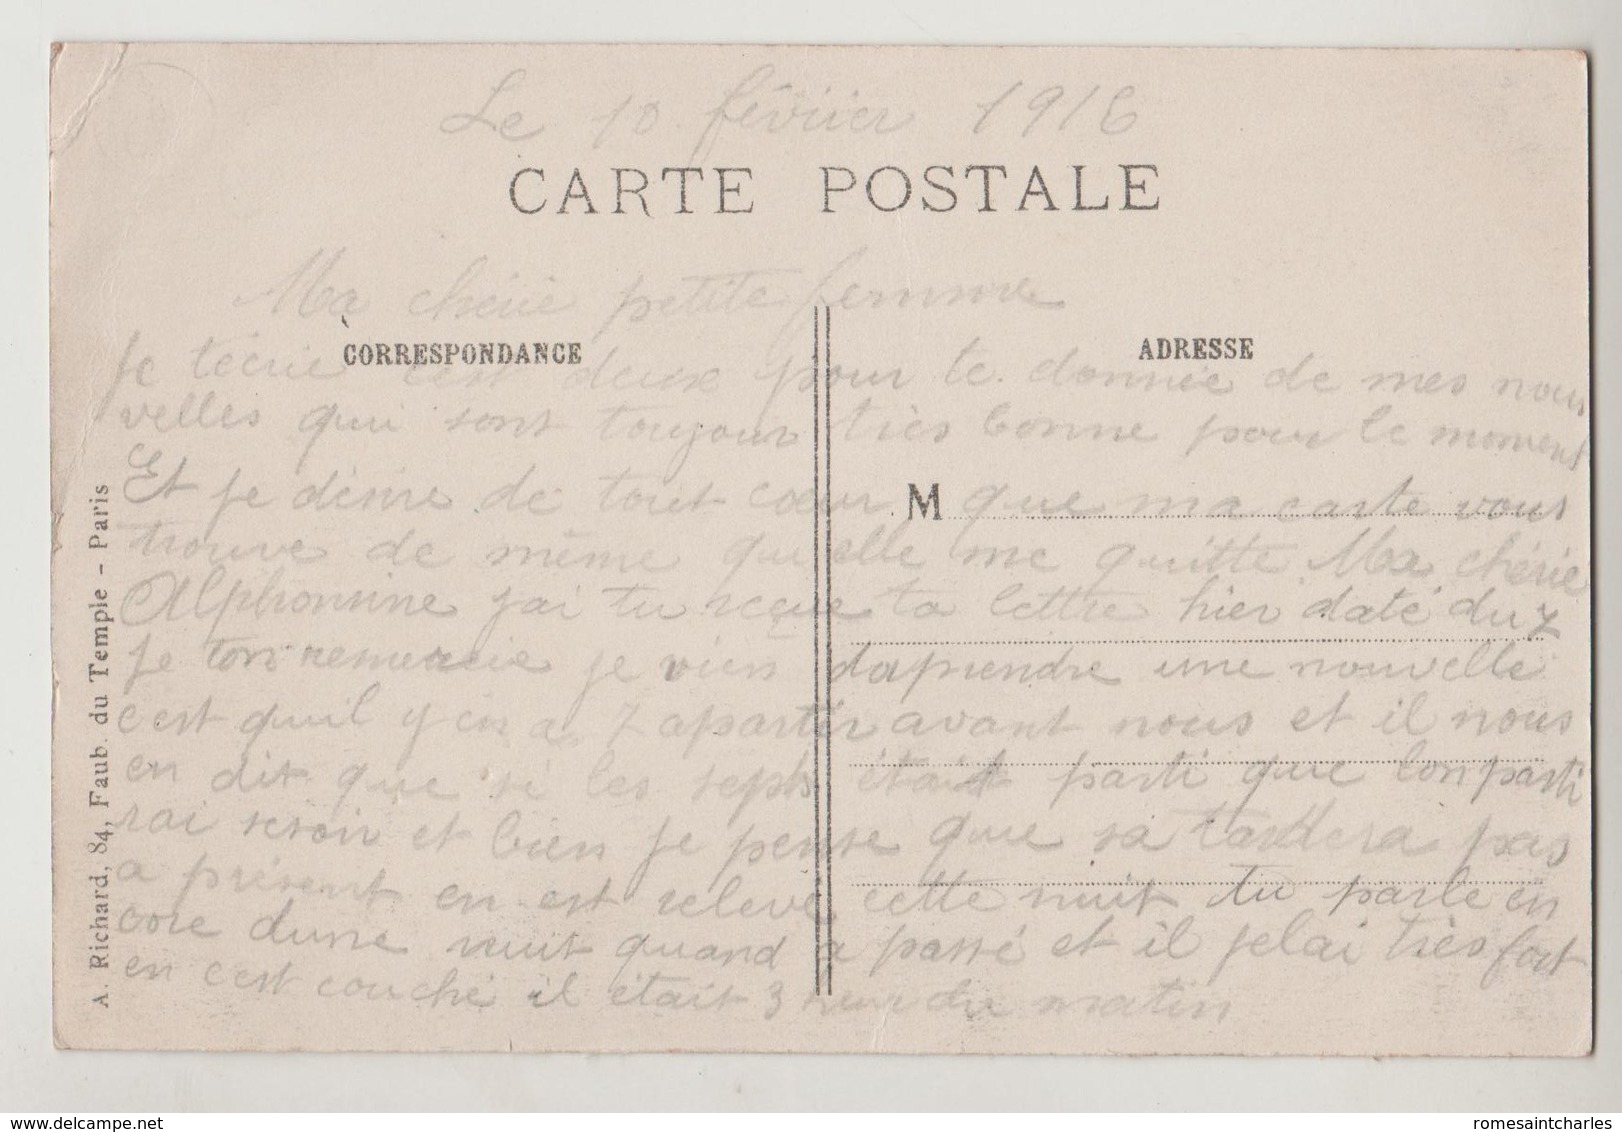 Le 10 février 1916
CARTE POSTALE
Ma chérie petite femme
CORRESPONDANCE
ADRESSE
Je técrie cest deux pour te donnée de mes nou
velles qui sont toujour très bonne pour le moment
Et je désire de tout cœur que ma carte vous
M
trouve de même qu'elle me quitte. Ma chérie
Alphonsine j'ai tu reçue ta lettre hier daté du 7
je ton remercie je vien daprendre une nouvelle
c'est quil y en a 7 a partir avant nous et il nous
en dit que si les sept était parti que lon parti
rai sesoir et bien je pense que sa tardera pas
a présent en est relevé cette nuit tu parle en
core dune nuit quand a passé et il jelai très fort
en c'est couché il était 3 heur du matin
A. Richard, 84, Faub. du Temple - Paris
delcampe.net
romesaintcharles